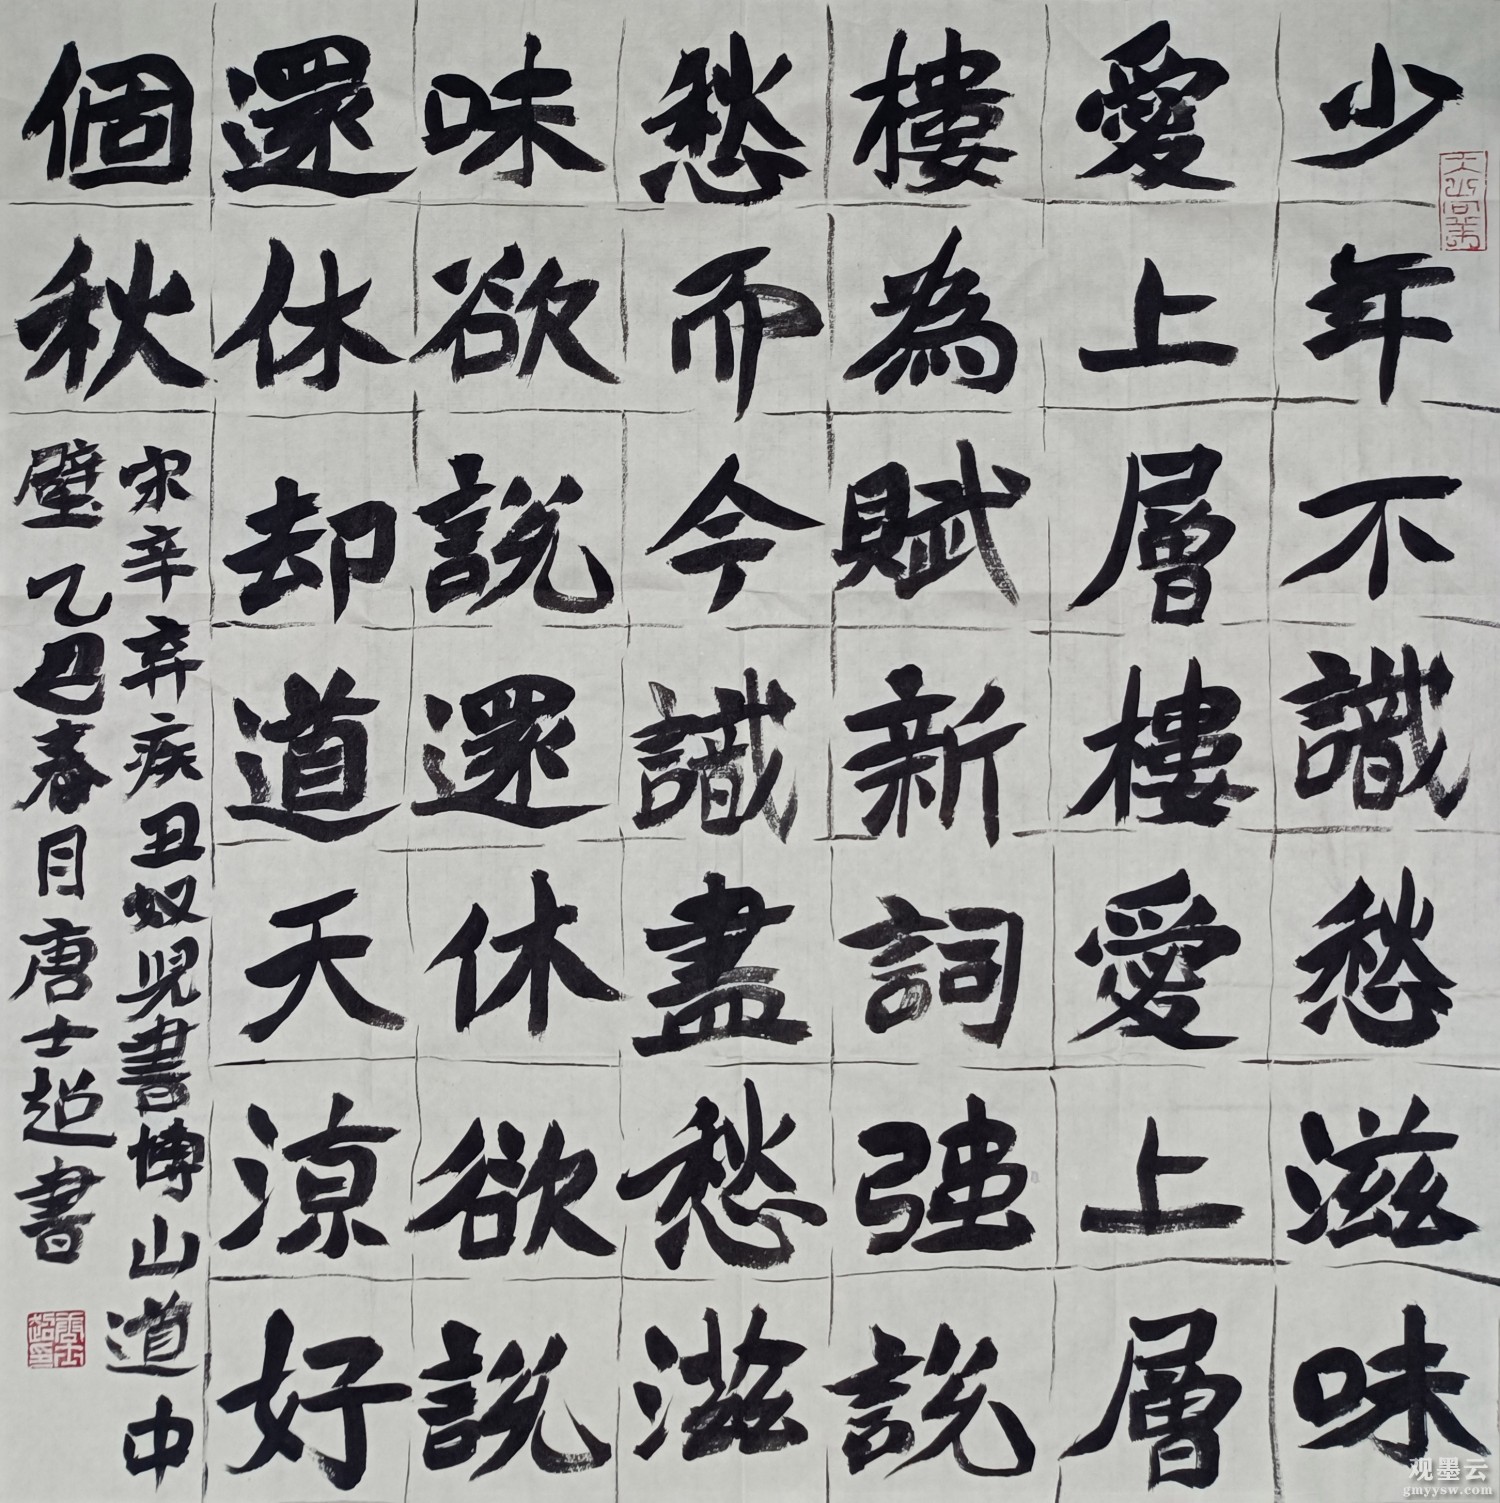 少年不識愁滋味
愛上層樓愛上層
樓為賦新詞強說
愁而今識盡愁滋
味欲說還休欲說
還休却道天涼好
個秋
宋辛弃疾丑奴兒書博山道中
壁乙巳春月唐士超書
唐士超印
观墨云
gmyysw.com